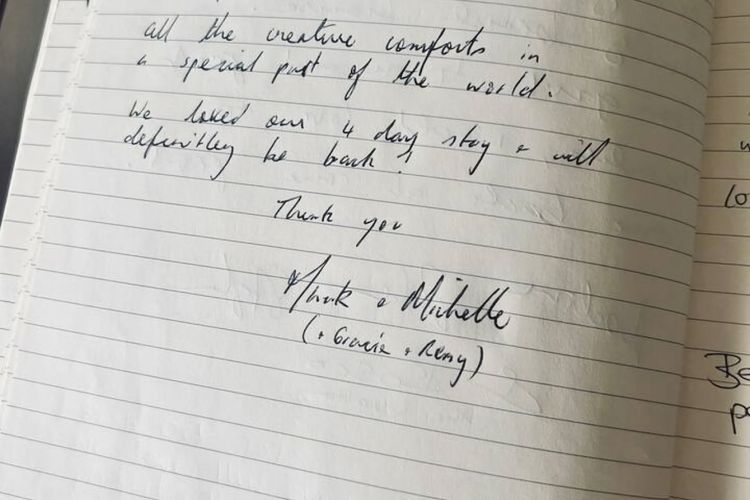 all the creature comforts in
a special part of the world.
We loved our 4 day stay + will
definitley be back!
Thank you
Mark + Michelle
(+ Gracie + Remy)
lo
Be